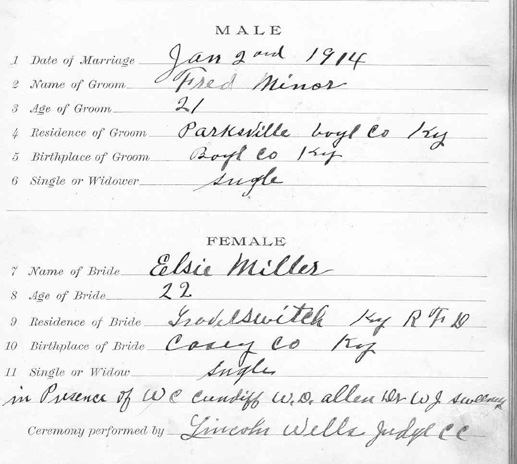 MALE
1 Date of Marriage Jan 2ond 1914
2 Name of Groom Fred Minor
3 Age of Groom 21
4 Residence of Groom Parksville boyl Co Ky
5 Birthplace of Groom Boyl Co Ky
6 Single or Widower sugle
FEMALE
7 Name of Bride Elsie Miller
8 Age of Bride 22
9 Residence of Bride Gravelswitch Ky R F D
10 Birthplace of Bride Casey Co Ky
11 Single or Widow sugle
in Presence of W C Cundiff W.D. allen Dr W J
Ceremony performed by Lincoln Wells Judge CC